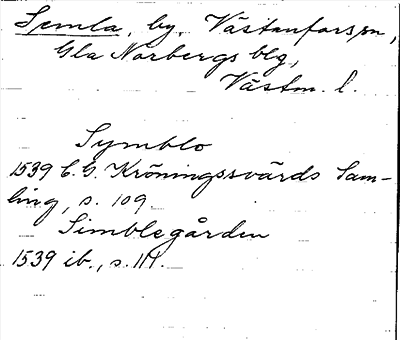 Semla, by, Västanforssn,
Gla Norbergs blg,
Västm. l.
Symblo
1539 C. G. Kröningssvärds Sam-
ling, s. 109
Simblegården
1539 ib., s. 114.